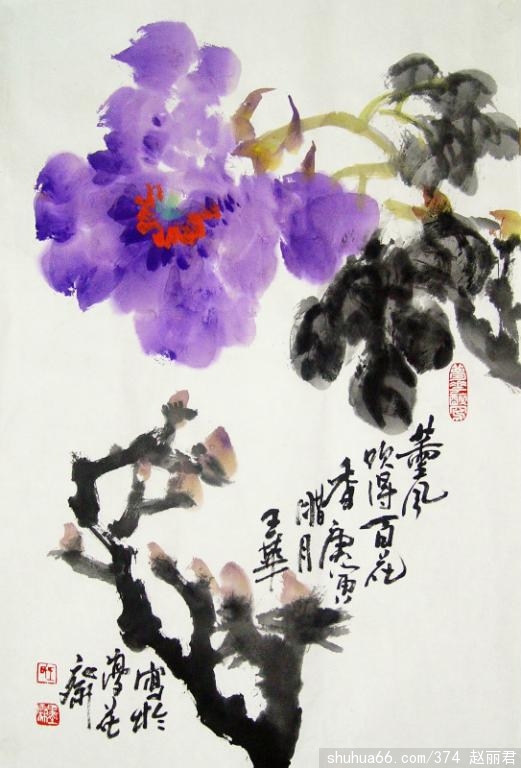 薰风
吹得百花
香庚寅
腊月
王華
寫於
齋
shuhua66.com/374 赵丽君